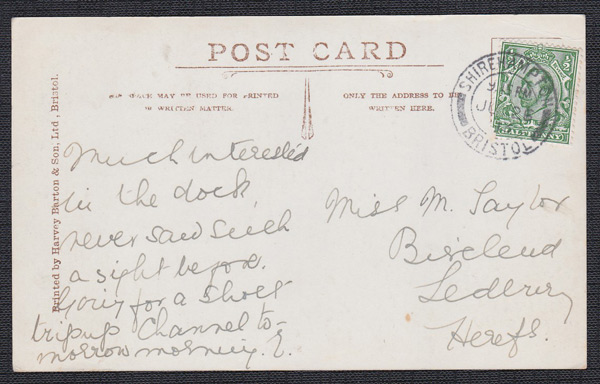 POST CARD
SPACE MAY BE USED FOR PRINTED
OR WRITTEN MATTER.
ONLY THE ADDRESS TO BE
WRITTEN HERE.
Printed by Harvey Barton & Son, Ltd, Bristol.
SHIREHAMPTON
BRISTOL
HALFPENNY
Much interested
in the dock,
never saw such
a sight before.
Going for a short
trip up Channel to-
morrow morning. E.
Miss M. Taylor
Ledbury
Herefs.